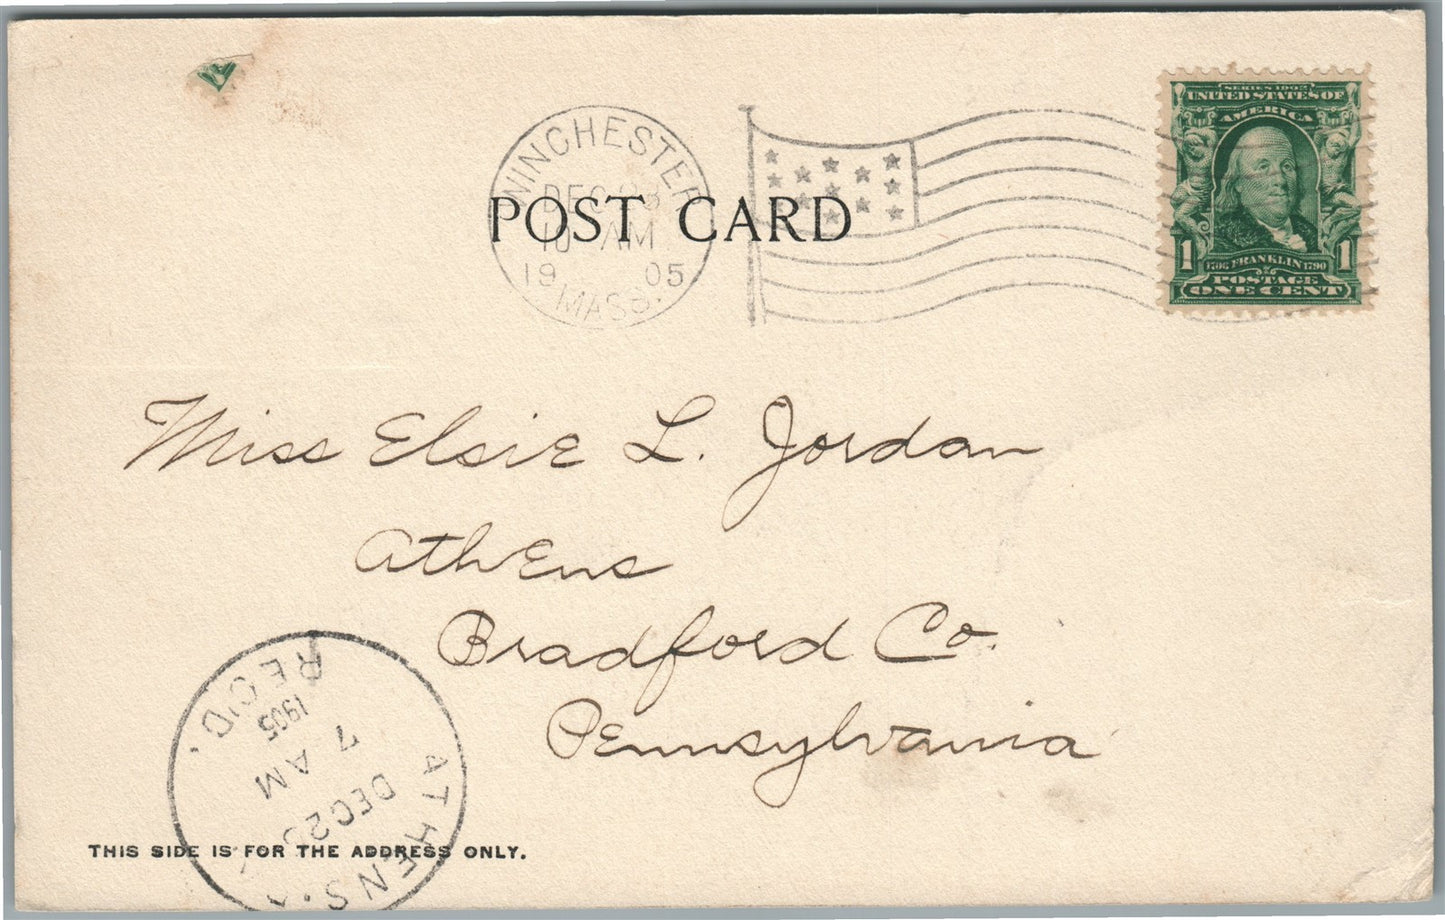 SERIES 1902
UNITED STATES OF
AMERICA
1 1706 FRANKLIN 1790 1
POSTAGE
ONE CENT
WINCHESTER
DEC 23
10 AM
19 05
MASS.
POST CARD
Miss Elsie L. Jordan
Athens
Bradford Co.
Pennsylvania
ATHENS.
DEC
7 AM
1905
REC'D.
THIS SIDE IS FOR THE ADDRESS ONLY.